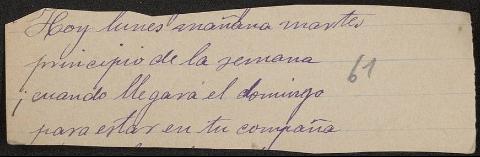 Hoy lunes mañana martes
principio de la semana
61
¡cuando llegara el domingo
para estar en tu compaña